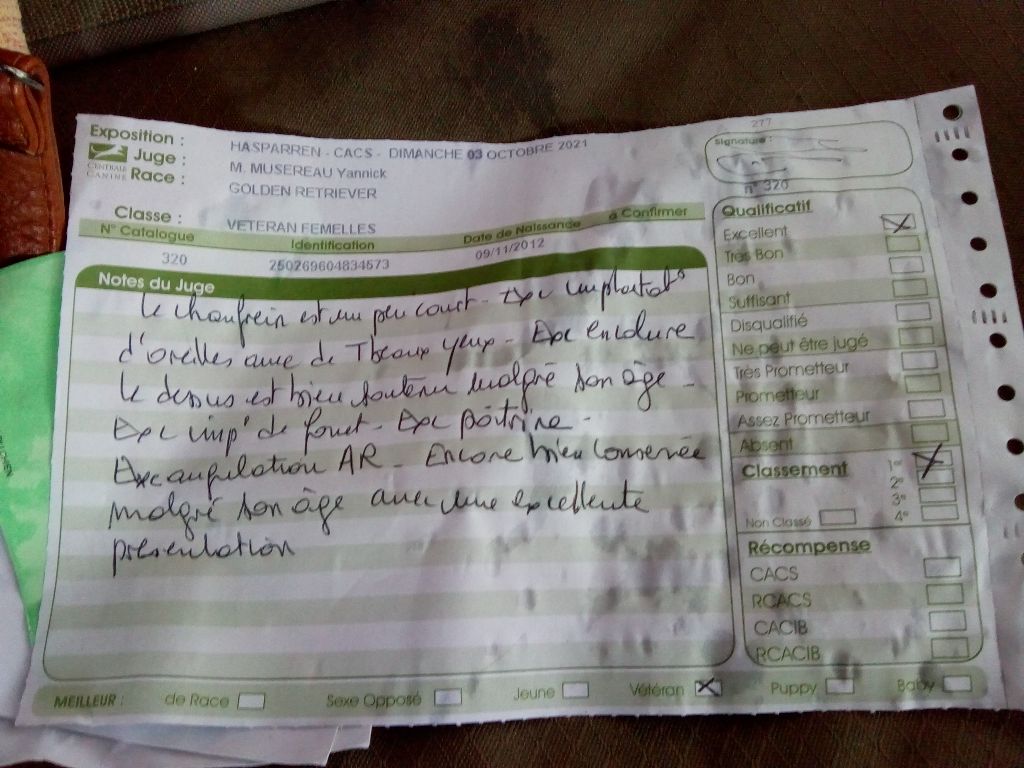 Exposition : HASPARREN - CACS - DIMANCHE 03 OCTOBRE 2021
Juge : M. MUSEREAU Yannick
CENTRALE CANINE
Race : GOLDEN RETRIEVER
Classe : VETERAN FEMELLES
N° Catalogue Identification Date de Naissance à Confirmer
320 250269604834573 09/11/2012
Notes du Juge
le chanfrein est un peu court - Exc implantat°
d'oreilles avec de T beaux yeux - Exc encolure
le dessus est bien soutenu malgré son âge -
Exc imp° de fouet - Exc poitrine -
Exc angulation AR - Encore bien conservée
malgré son âge avec une excellente
présentation
277
Signature :
n° 320
Qualificatif
Excellent
Très Bon
Bon
Suffisant
Disqualifié
Ne peut être jugé
Très Prometteur
Prometteur
Assez Prometteur
Absent
Classement 1er
2e
3e
Non Classé 4e
Récompense
CACS
RCACS
CACIB
RCACIB
MEILLEUR : de Race Sexe Opposé Jeune Vétéran Puppy Baby